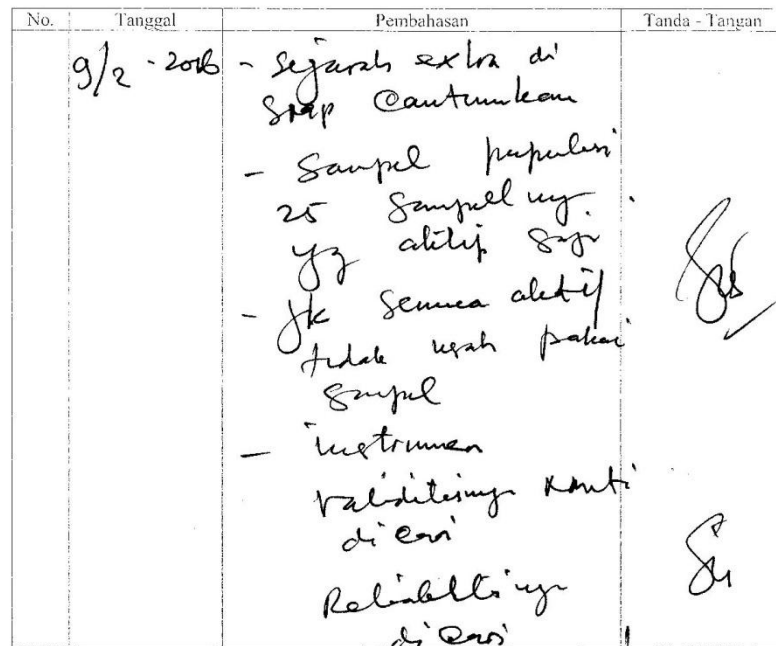 No. Tanggal Pembahasan Tanda - Tangan
9/2 - 2016 - Sejarah extra di
Srap Cantumkan
- Sampel populasi
25 Sampelny
yg aktip saja
- jk semua aktif
tidak usah pakai
Sampel
- instrumen
Validitasnya nanti
di cari
Reliabilitasnya
di cari